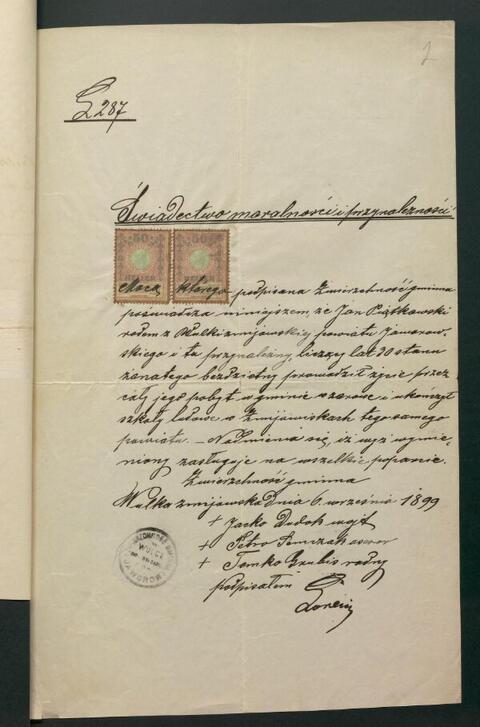 2
L 287
Świadectwo moralności i przynależności
50 50
HELLER HELLER
Mocą którego podpisana Zwierzchność gminna
poświadcza niniejszem, że Jan Piątkowski
rodem z Wulki żmijowskiej powiatu Jaworow-
skiego i tu przynależny, liczący lat 30 stanu
żonatego bezdzietny prowadził życie przez
cały jego pobyt w gminie i ukończył
szkoły ludowe w tego samego
powiatu. – Nadmienia się, iż wyż wymie-
niony zasługuje na wszelkie poparcie.
Zwierzchność gminna
Wulka żmijowska dnia 6. września 1899
+ Jacko Dudok wójt
+ Petro asesor
+ Tomko radny
podpisałem
WULCE
JAWORÓW